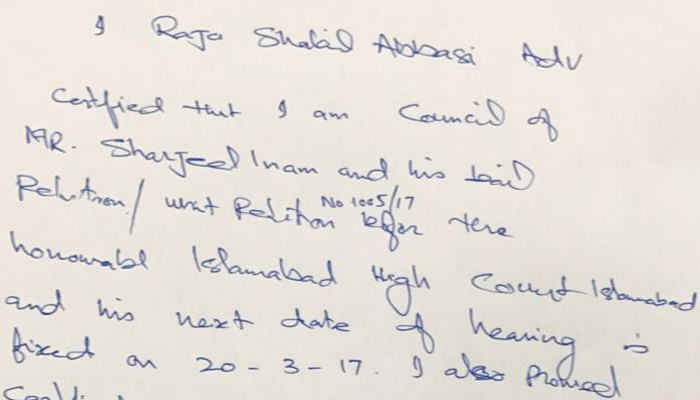 I Raja Shakil Abbasi Adv
Certified that I am Council of
MR. Sharjeel Inam and his bail
Petition / writ Petition No 1005/17 before
honourabl Islamabad High Court Islamabad
and his next date of hearing is
fixed on 20-3-17. I also